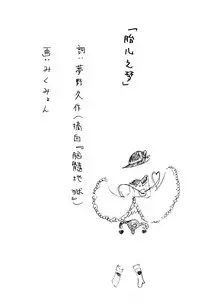 「胎儿之梦」
词：梦野久作（摘自『脑髓地狱』）
画：みくみょん